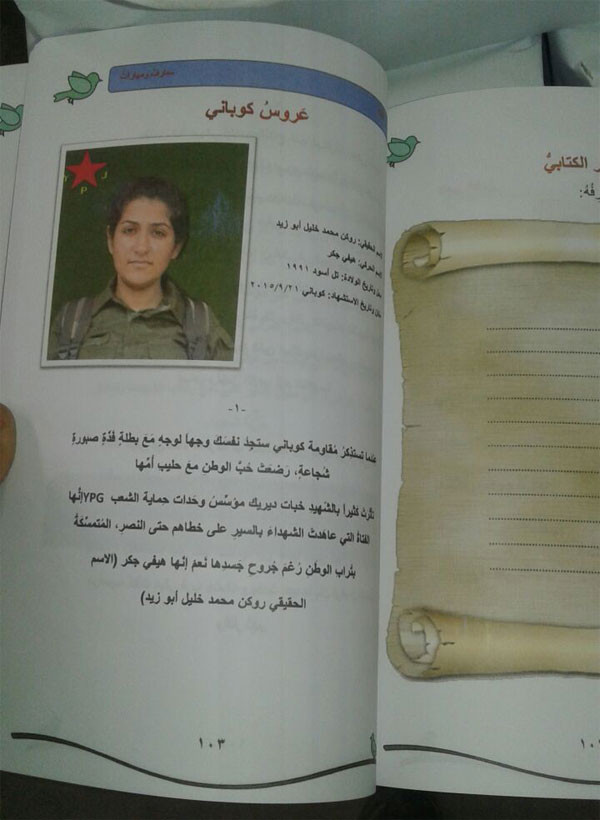 معارف ومهارات
عَروسُ كوباني
Y P J
الحقيقي: روكن محمد خليل أبو زيد
الحركي: هيفي جكر
وتاريخ الولادة: تل أسود ١٩٩١
وتاريخ الاستشهاد: كوباني ٢٠١٥/٩/٢١
-١-
عندما تستذكرُ مُقاومة كوباني ستجِدُ نفسَك وجهاً لوجهِ مَعَ بطلةِ فذّةِ صبورةِ
شُجاعةٍ، رَضَعَتْ حُبَّ الوطنِ معَ حليب أُمِّها
تأثرت كثيراً بالشّهيدِ خبات ديريك مؤسّسِ وحَداتِ حِماية الشعب YPG إنَّها
الفتاةُ التي عاهَدتْ الشهداءَ بالسيرِ على خطاهم حتى النصرِ، المُتمسِّكةُ
بتُرابِ الوطنِ رُغمَ جُروحِ جَسدِها نعمْ إنّها هيفي جكر (الاسم
الحقيقي روكن محمد خليل أبو زيد)
١٠٣
الكتابيُّ